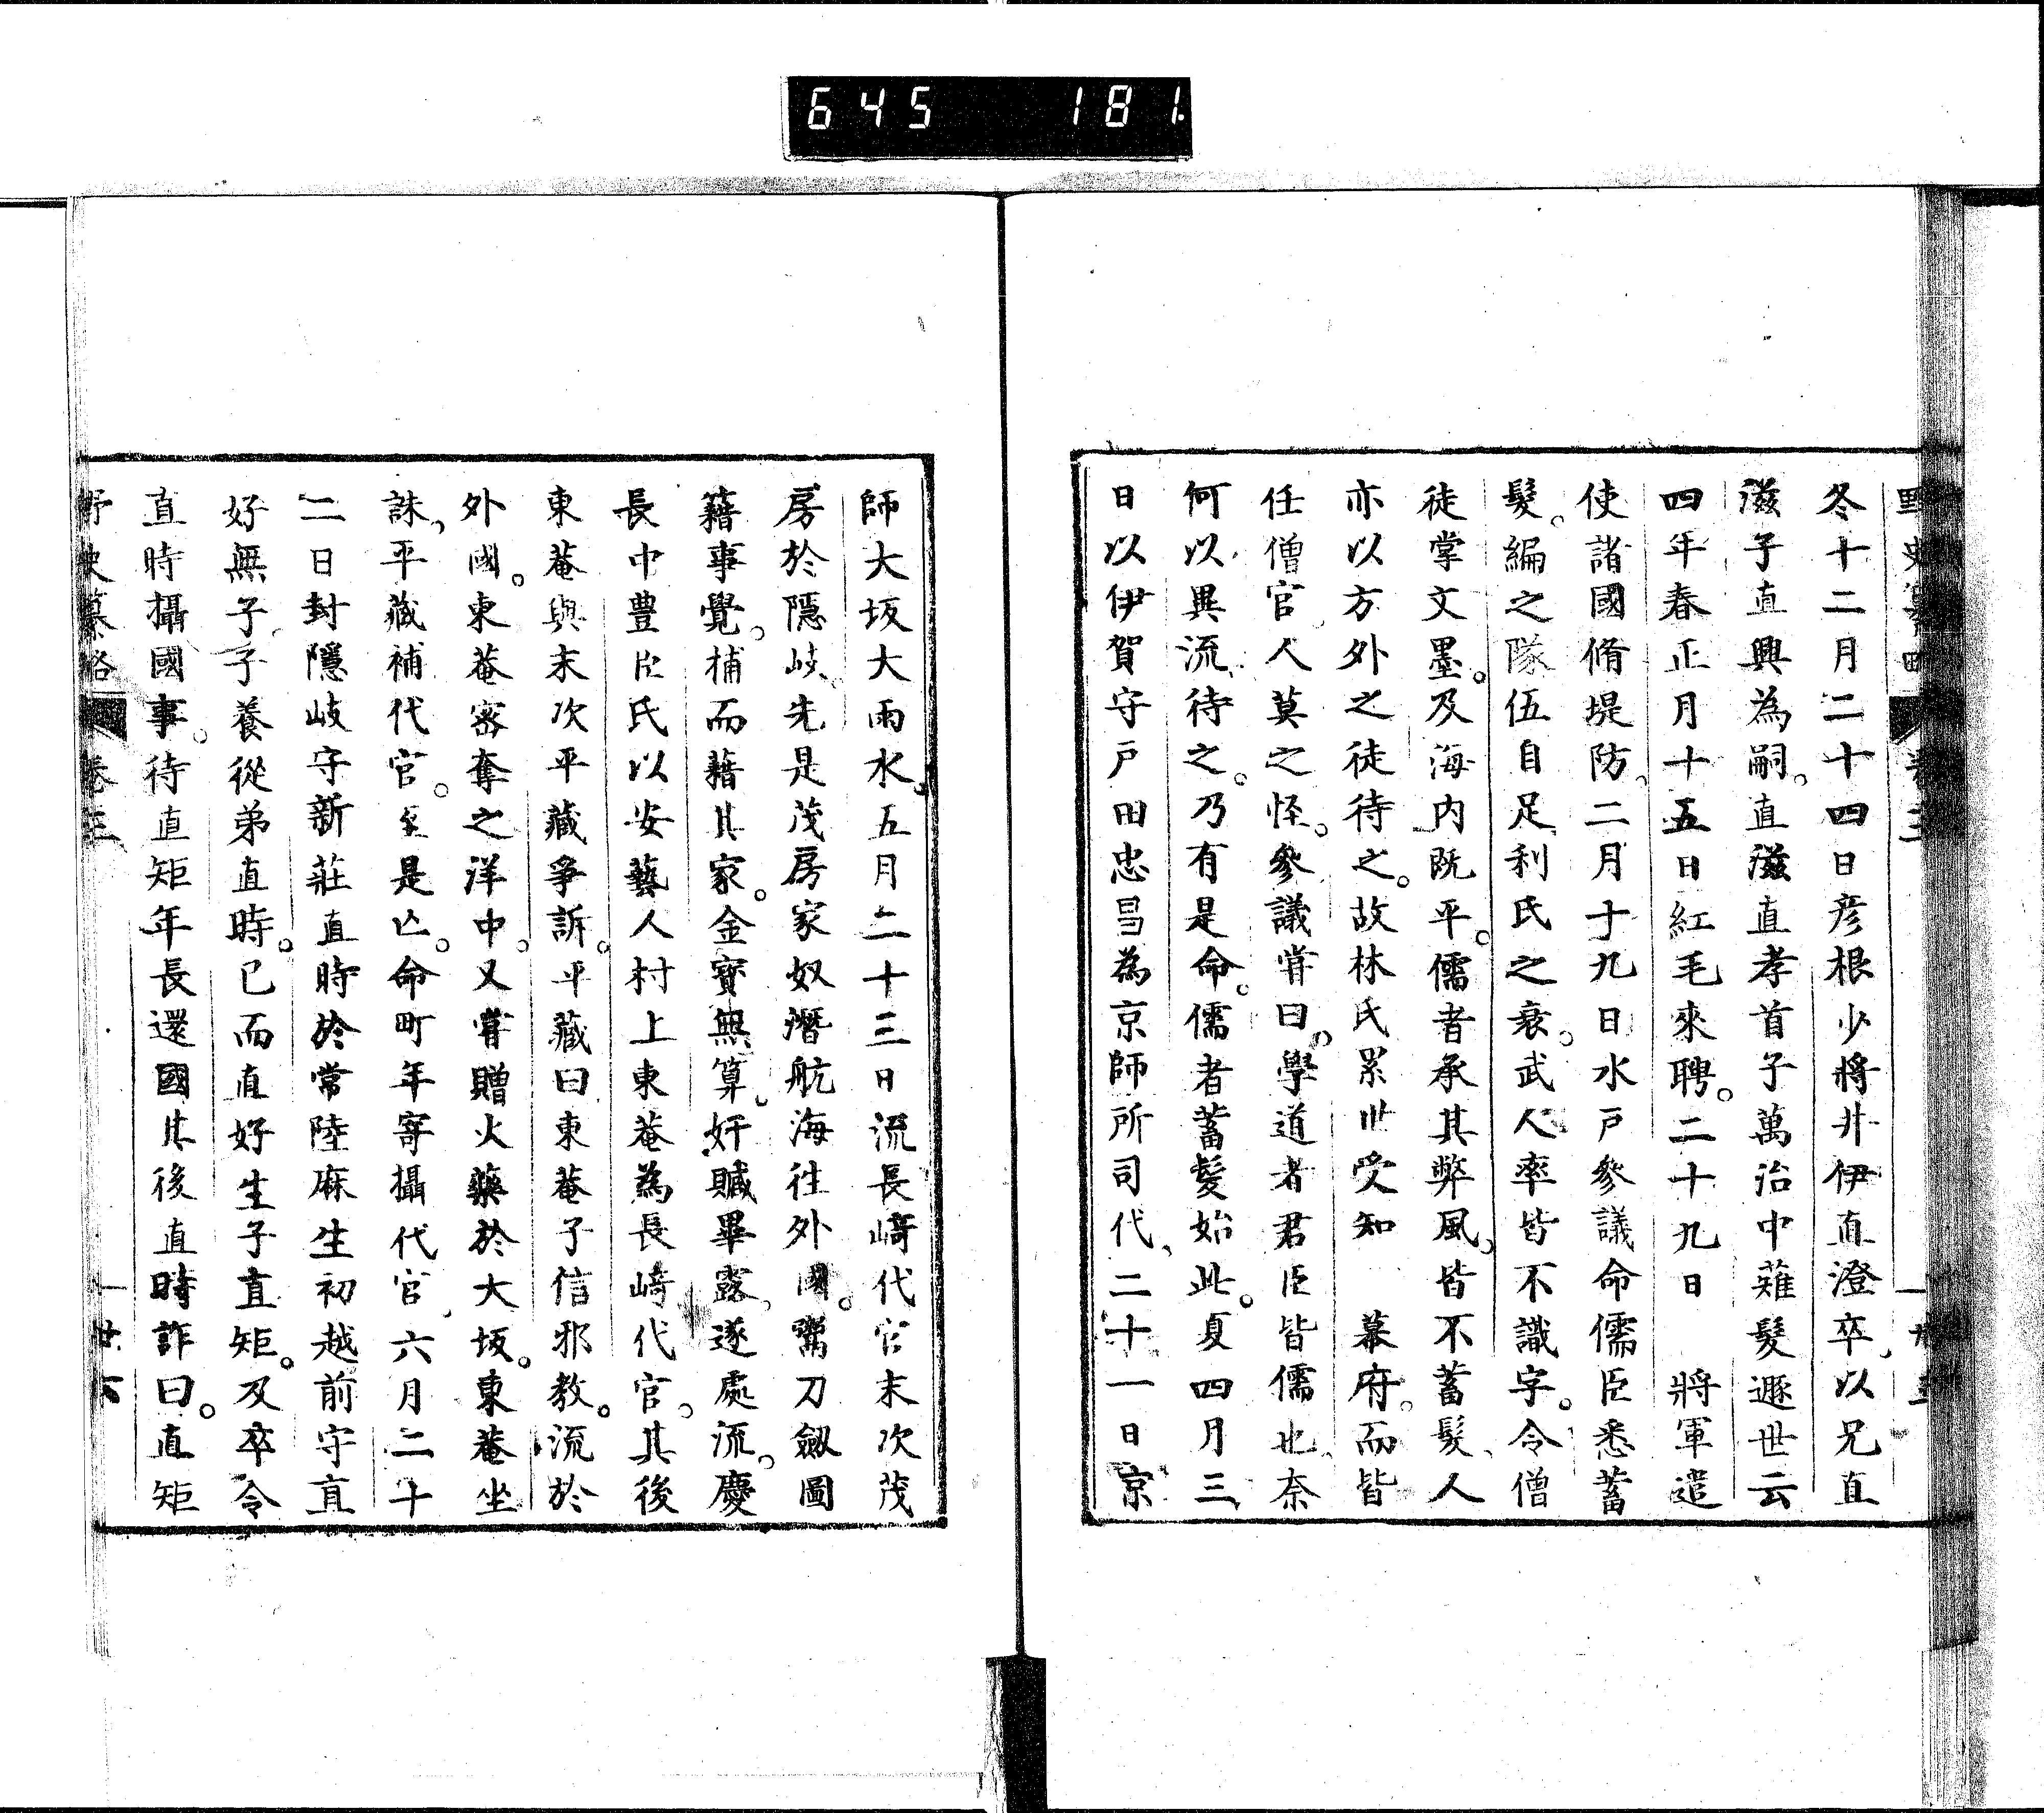 645 181
野史纂略 卷三
冬十二月二十四日彦根少將井伊直澄卒以兄直
滋子直興為嗣直滋直孝首子萬治中薙髮遯世云
四年春正月十五日紅毛來聘二十九日 將軍遣
使諸國脩堤防二月十九日水戸參議命儒臣悉蓄
髮編之隊伍自足利氏之衰武人率皆不識字令僧
徒掌文墨及海内既平儒者承其弊風皆不蓄髮人
亦以方外之徒待之故林氏累世受知 幕府而皆
任僧官人莫之怪參議嘗曰學道者君臣皆儒也奈
何以異流待之乃有是命儒者蓄髮始此夏四月三
日以伊賀守戸田忠昌為京師所司代二十一日京
師大坂大雨水五月二十三日流長﨑代官末次茂
房於隱岐先是茂房家奴潛航海往外國鬻刀劔圖
籍事覺捕而藉其家金寶無算奸贓畢露遂處流慶
長中豊臣氏以安藝人村上東菴為長﨑代官其後
東菴與末次平藏爭訴平藏曰東菴子信邪教流於
外國東菴密奪之洋中又嘗贈火藥於大坂東菴坐
誅平藏補代官至是亡命町年寄攝代官六月二十
二日封隱岐守新莊直時於常陸麻生初越前守直
好無子子養從弟直時已而直好生子直矩及卒令
直時攝國事待直矩年長還國其後直時詐曰直矩
野史纂略 卷三 廿六